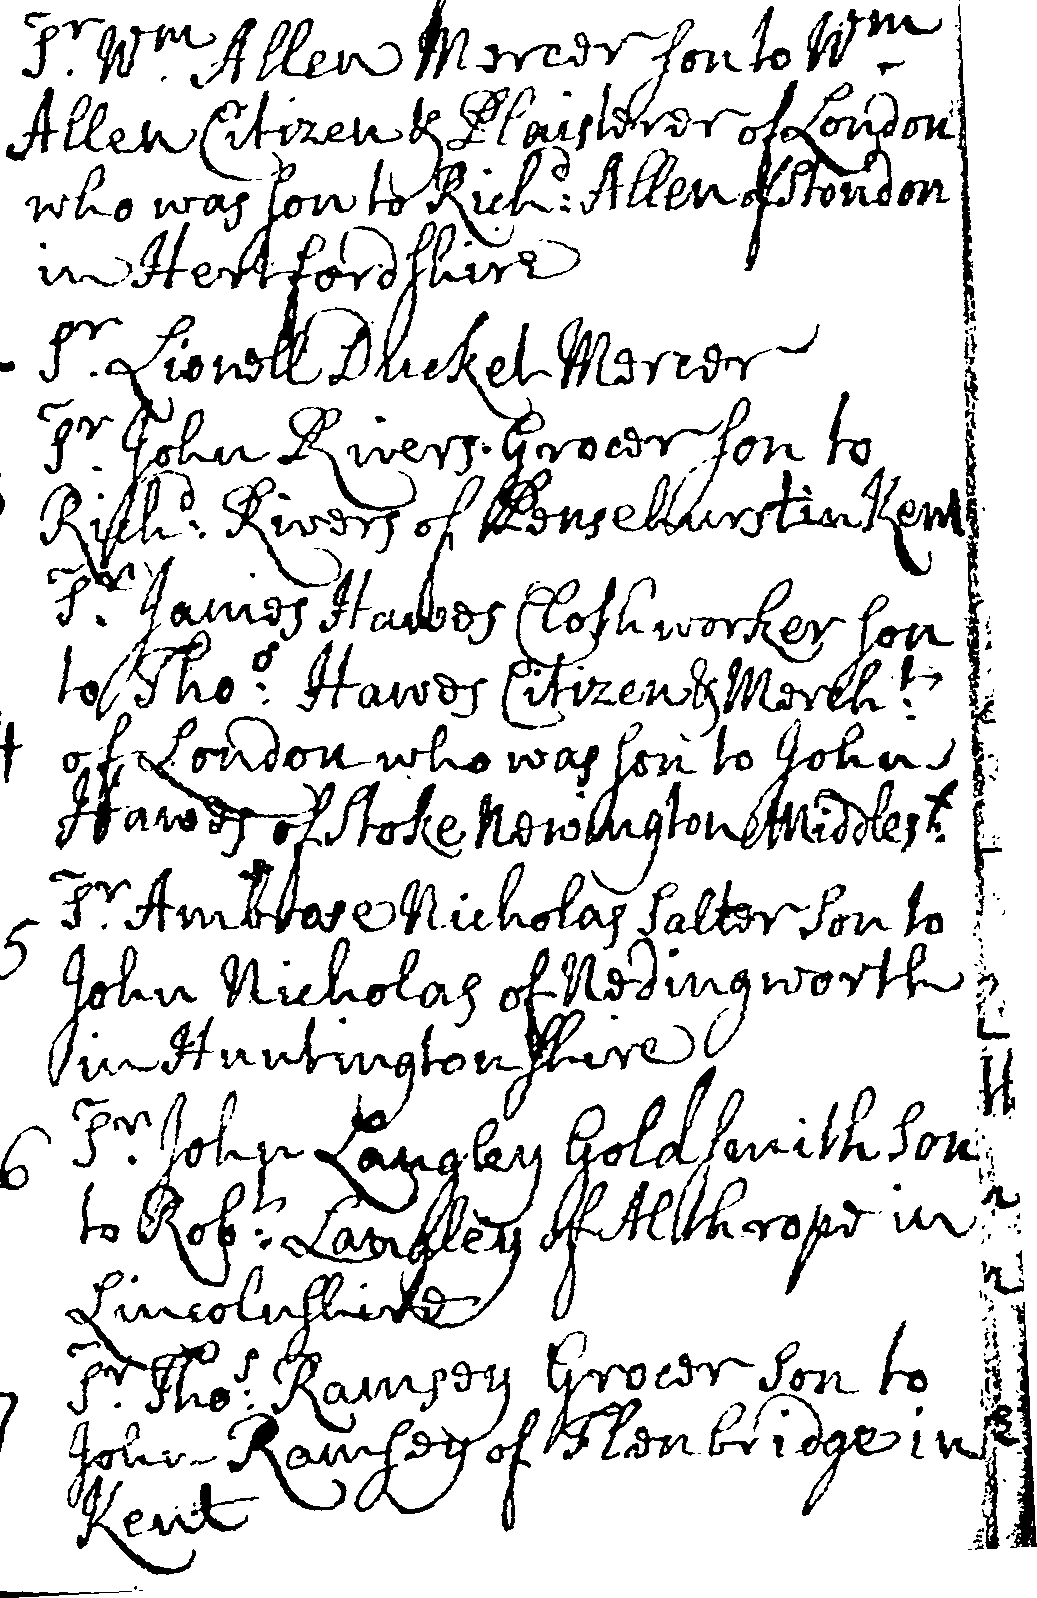 Sr. Wm. Allen Mercer son to Wm
Allen Citizen & Plaisterer of London
who was son to Richd: Allen of Stondon
in Hertfordshire
Sr. Lionell Ducket Mercer
Sr. John Rivers Grocer son to
Richd: Rivers of Pensehurst in Kent
Sr. James Hawes Clothworker son
to Thos: Hawes Citizen & Mercht:
of London who was son to John
Hawes of Stoke Newington Middlesx:
5 Sr. Ambrose Nicholas Salter son to
John Nicholas of Nedingworth
in Huntingtonshire
6 Sr. John Langley Goldsmith son
to Robt: Langley of Althrope in
Lincolnshire
7 Sr. Thos: Ramsey Grocer son to
John Ramsey of Elenbridge in
Kent